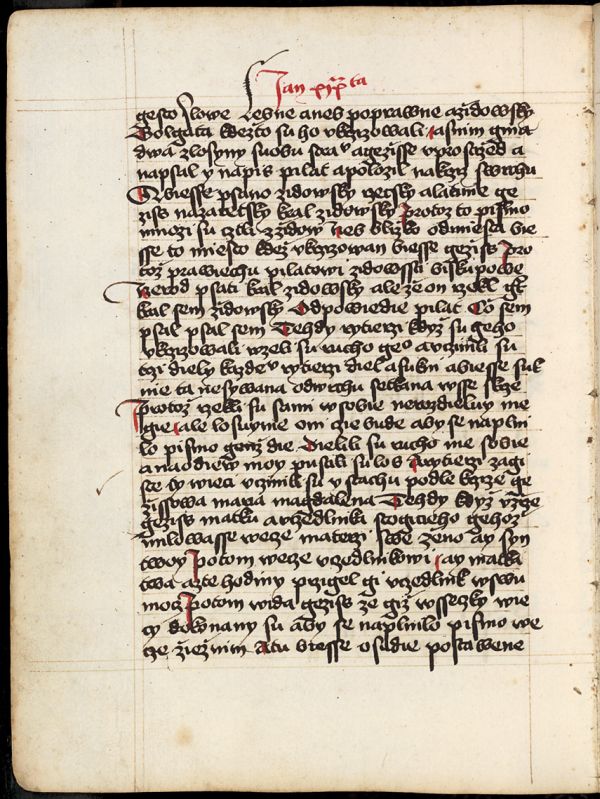 Jan xix ta
gesto slowe lesne aneb poprawne a židowsky
Golgata kdežto su ho vkrzizowali a s nim gina
dwa z losyny s uobu stra v a gezisse vprostrzed a
napsal y napis pilat a polozil na krziz swrchu
A biesse psano židowsky rzecsky a latinie ge
ziss nazaretsky kral židowsky protoz to pismo
mnozi su cztli z židow neb blizko od miesta bie
sse to miesto kdež vkrzizowan biesse geziss Pro
tož prawiechu pilatowi židowssti biskupowe
Nerod psati kral židowsky ale že on rzekl gt
kral sem židowsky Odpowiedie pilat Co sem
psal psal sem Tehdy rytierzi kdyz su geho
vkrzizowali wzeli su rucho geo a vczinili su
trzi diely kazde v rytierzi diel a sukni a biesse suk
nie ta nesywana od wrchu setkana wsse skrze
protož rzekli su sami w sobie nerozdieluy me
gie ale losuyme o ni cie bude aby se naplni
lo pismo genz die Dielili su rucho me sobie
a na odiew moy pustili su los A rytierzi zagi
ste ty wieci vczinili su v stachu podle krzize ge
zissowa maria magdalena Tehdy když vzrze
geziss matku a vczedlnika stogicieho gehož
milowasse wece materzi swe ženo ay syn
twoy potom wece vczedlnikowi ay matka
twa a z te hodiny przigel gi vczedlnik w swu
moc Potom wida geziss že giž wsseczky wie
cy dokonany su aby se naplnilo pismo we
ce žiežnim A tu biesse osudie postawene